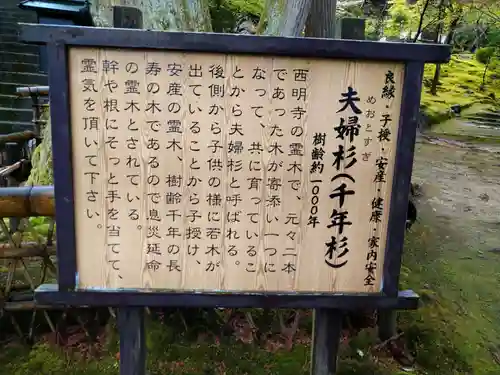 良縁・子授・安産・健康・家内安全
めおとすぎ
夫婦杉(千年杉)
樹齢一〇〇〇年
西明寺の霊木で、元々二本
であった木が寄添い一つに
なって、共に育っているこ
とから夫婦杉と呼ばれる。
後側から子供の様に若木が
出ていることから子授け
安産の霊木、樹齢千年の長
寿の木であるので息災延命
の霊木とされている。
幹や根にそっと手を当てて、
霊気を頂いて下さい。